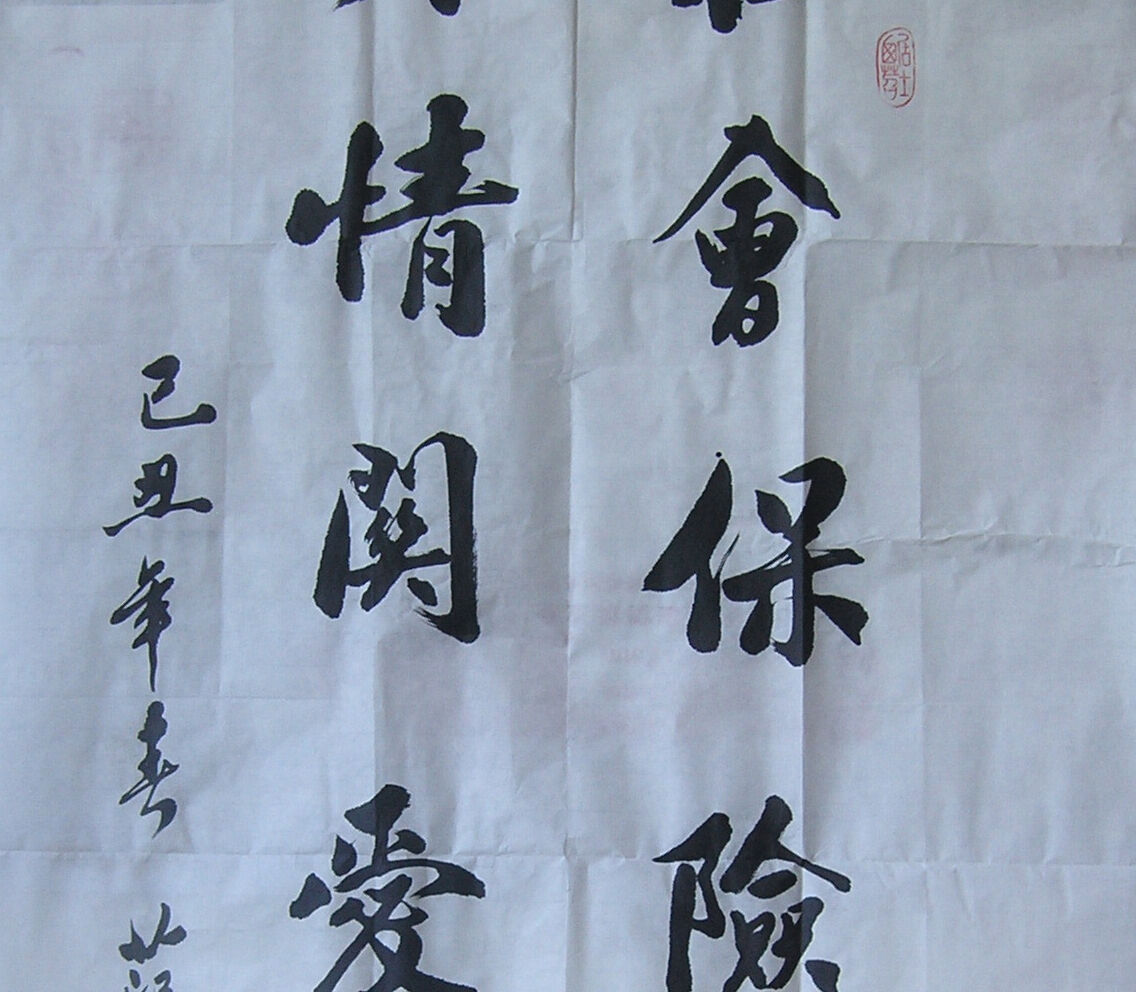 會保險
情關愛
己丑年春